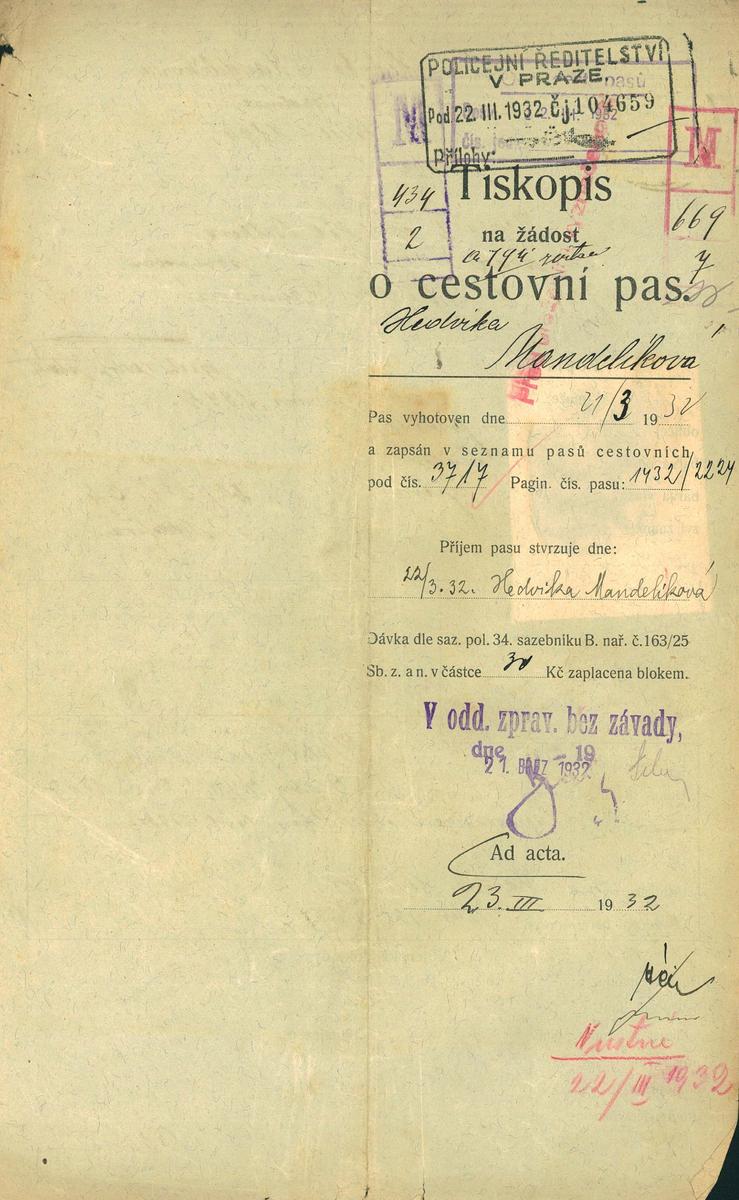 POLICEJNÍ ŘEDITELSTVÍ
V PRAZE.
Pod 22. III. 1932 Čj 104659
Přílohy:
M
434
2
M
669
7
Tiskopis
na žádost
o cestovní pas.
Hedvika
Mandelíková
Pas vyhotoven dne 21/3 1932
a zapsán v seznamu pasů cestovních
pod čís. 3717 Pagin. čís. pasu: 1432/2224
Příjem pasu stvrzuje dne:
22/3. 32. Hedvika Mandelíková
Dávka dle saz. pol. 34. sazebníku B. nař. č. 163/25
Sb. z. a n. v částce 30 Kč zaplacena blokem.
V odd. zprav. bez závady,
dne 19
21. BŘEZ. 1932
Ad acta.
23. III 1932
22/III 1932